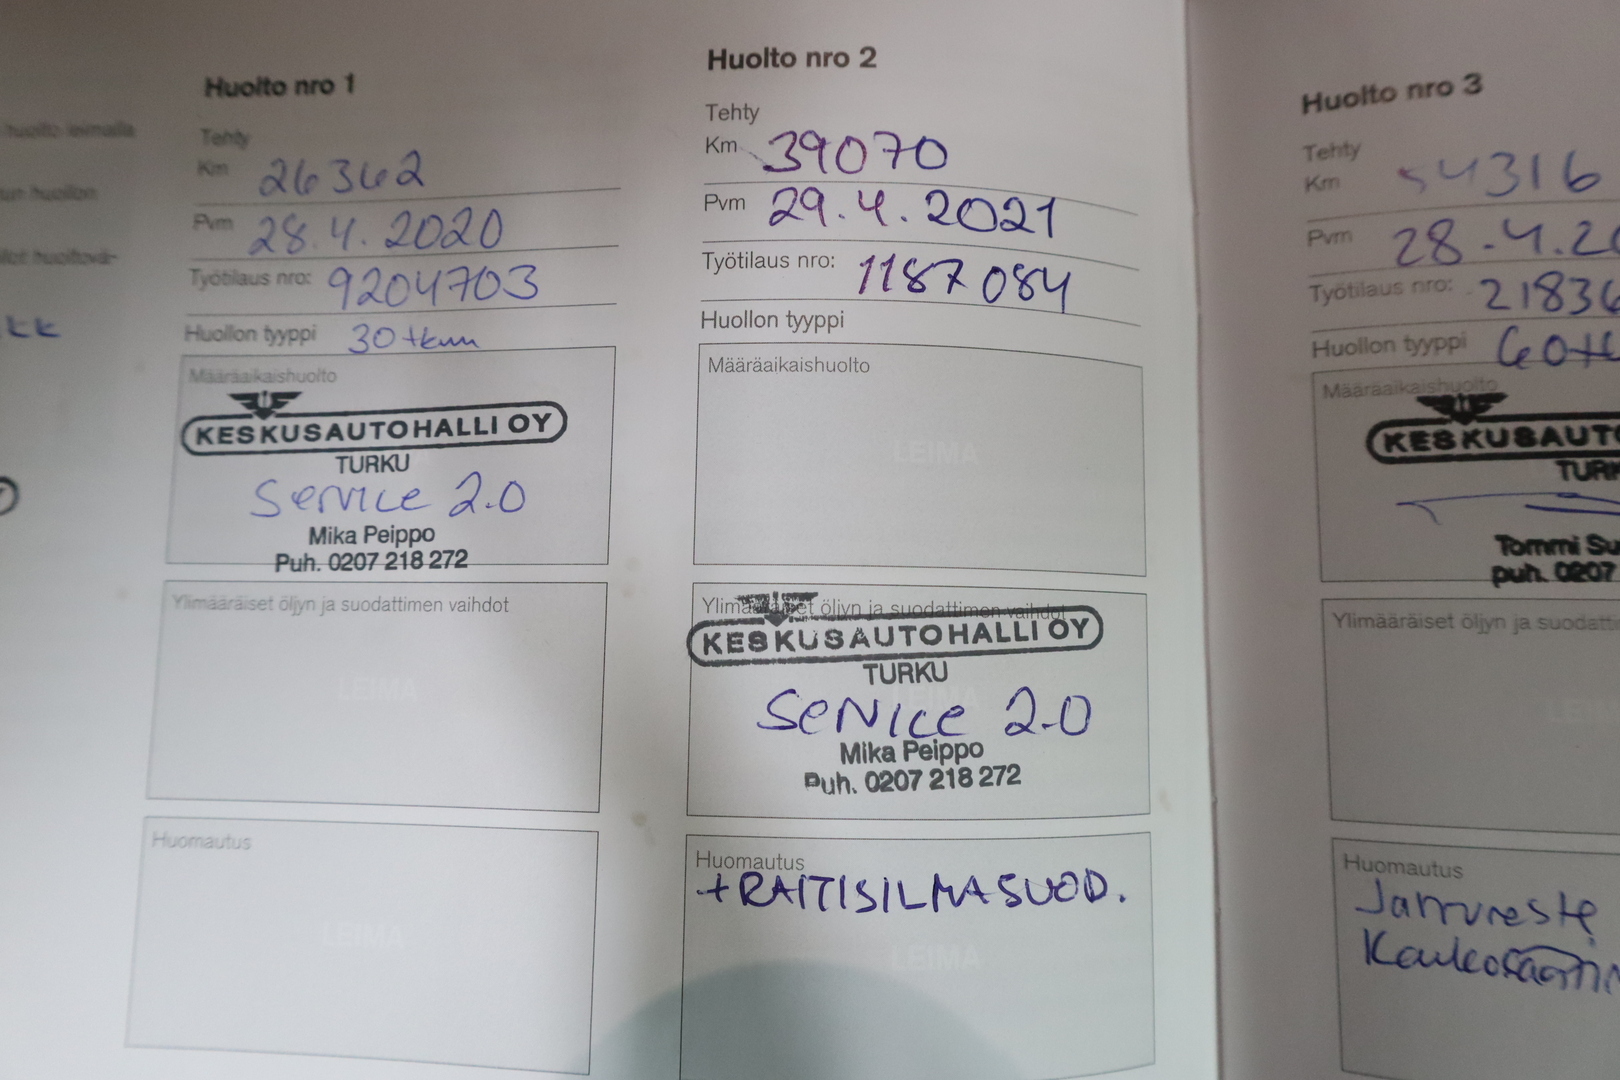 huolto leimalla
un huollon
kk
Huolto nro 1
Tehty
Km 26362
Pvm 28.4.2020
Työtilaus nro: 9204703
Huollon tyyppi 30 tkm
Määräaikaishuolto
KESKUSAUTOHALLI OY
TURKU
Service 2.0
Mika Peippo
Puh. 0207 218 272
Ylimääräiset öljyn ja suodattimen vaihdot
LEIMA
Huomautus
LEIMA
Huolto nro 2
Tehty
Km 39070
Pvm 29.4.2021
Työtilaus nro: 1187084
Huollon tyyppi
Määräaikaishuolto
LEIMA
Ylimääräiset öljyn ja suodattimen vaihdot
KESKUSAUTOHALLI OY
TURKU
Service 2.0
Mika Peippo
Puh. 0207 218 272
Huomautus
+RAITISILMASUOD.
LEIMA
Huolto nro 3
Tehty
Km 54316
Pvm 28.4.20
Työtilaus nro: 21836
Huollon tyyppi 60tk
Määräaikaishuolto
KESKUSAUTO
TURK
Tommi Su
puh. 0207
Ylimääräiset öljyn ja suodatti
LEI
Huomautus
Jarruneste